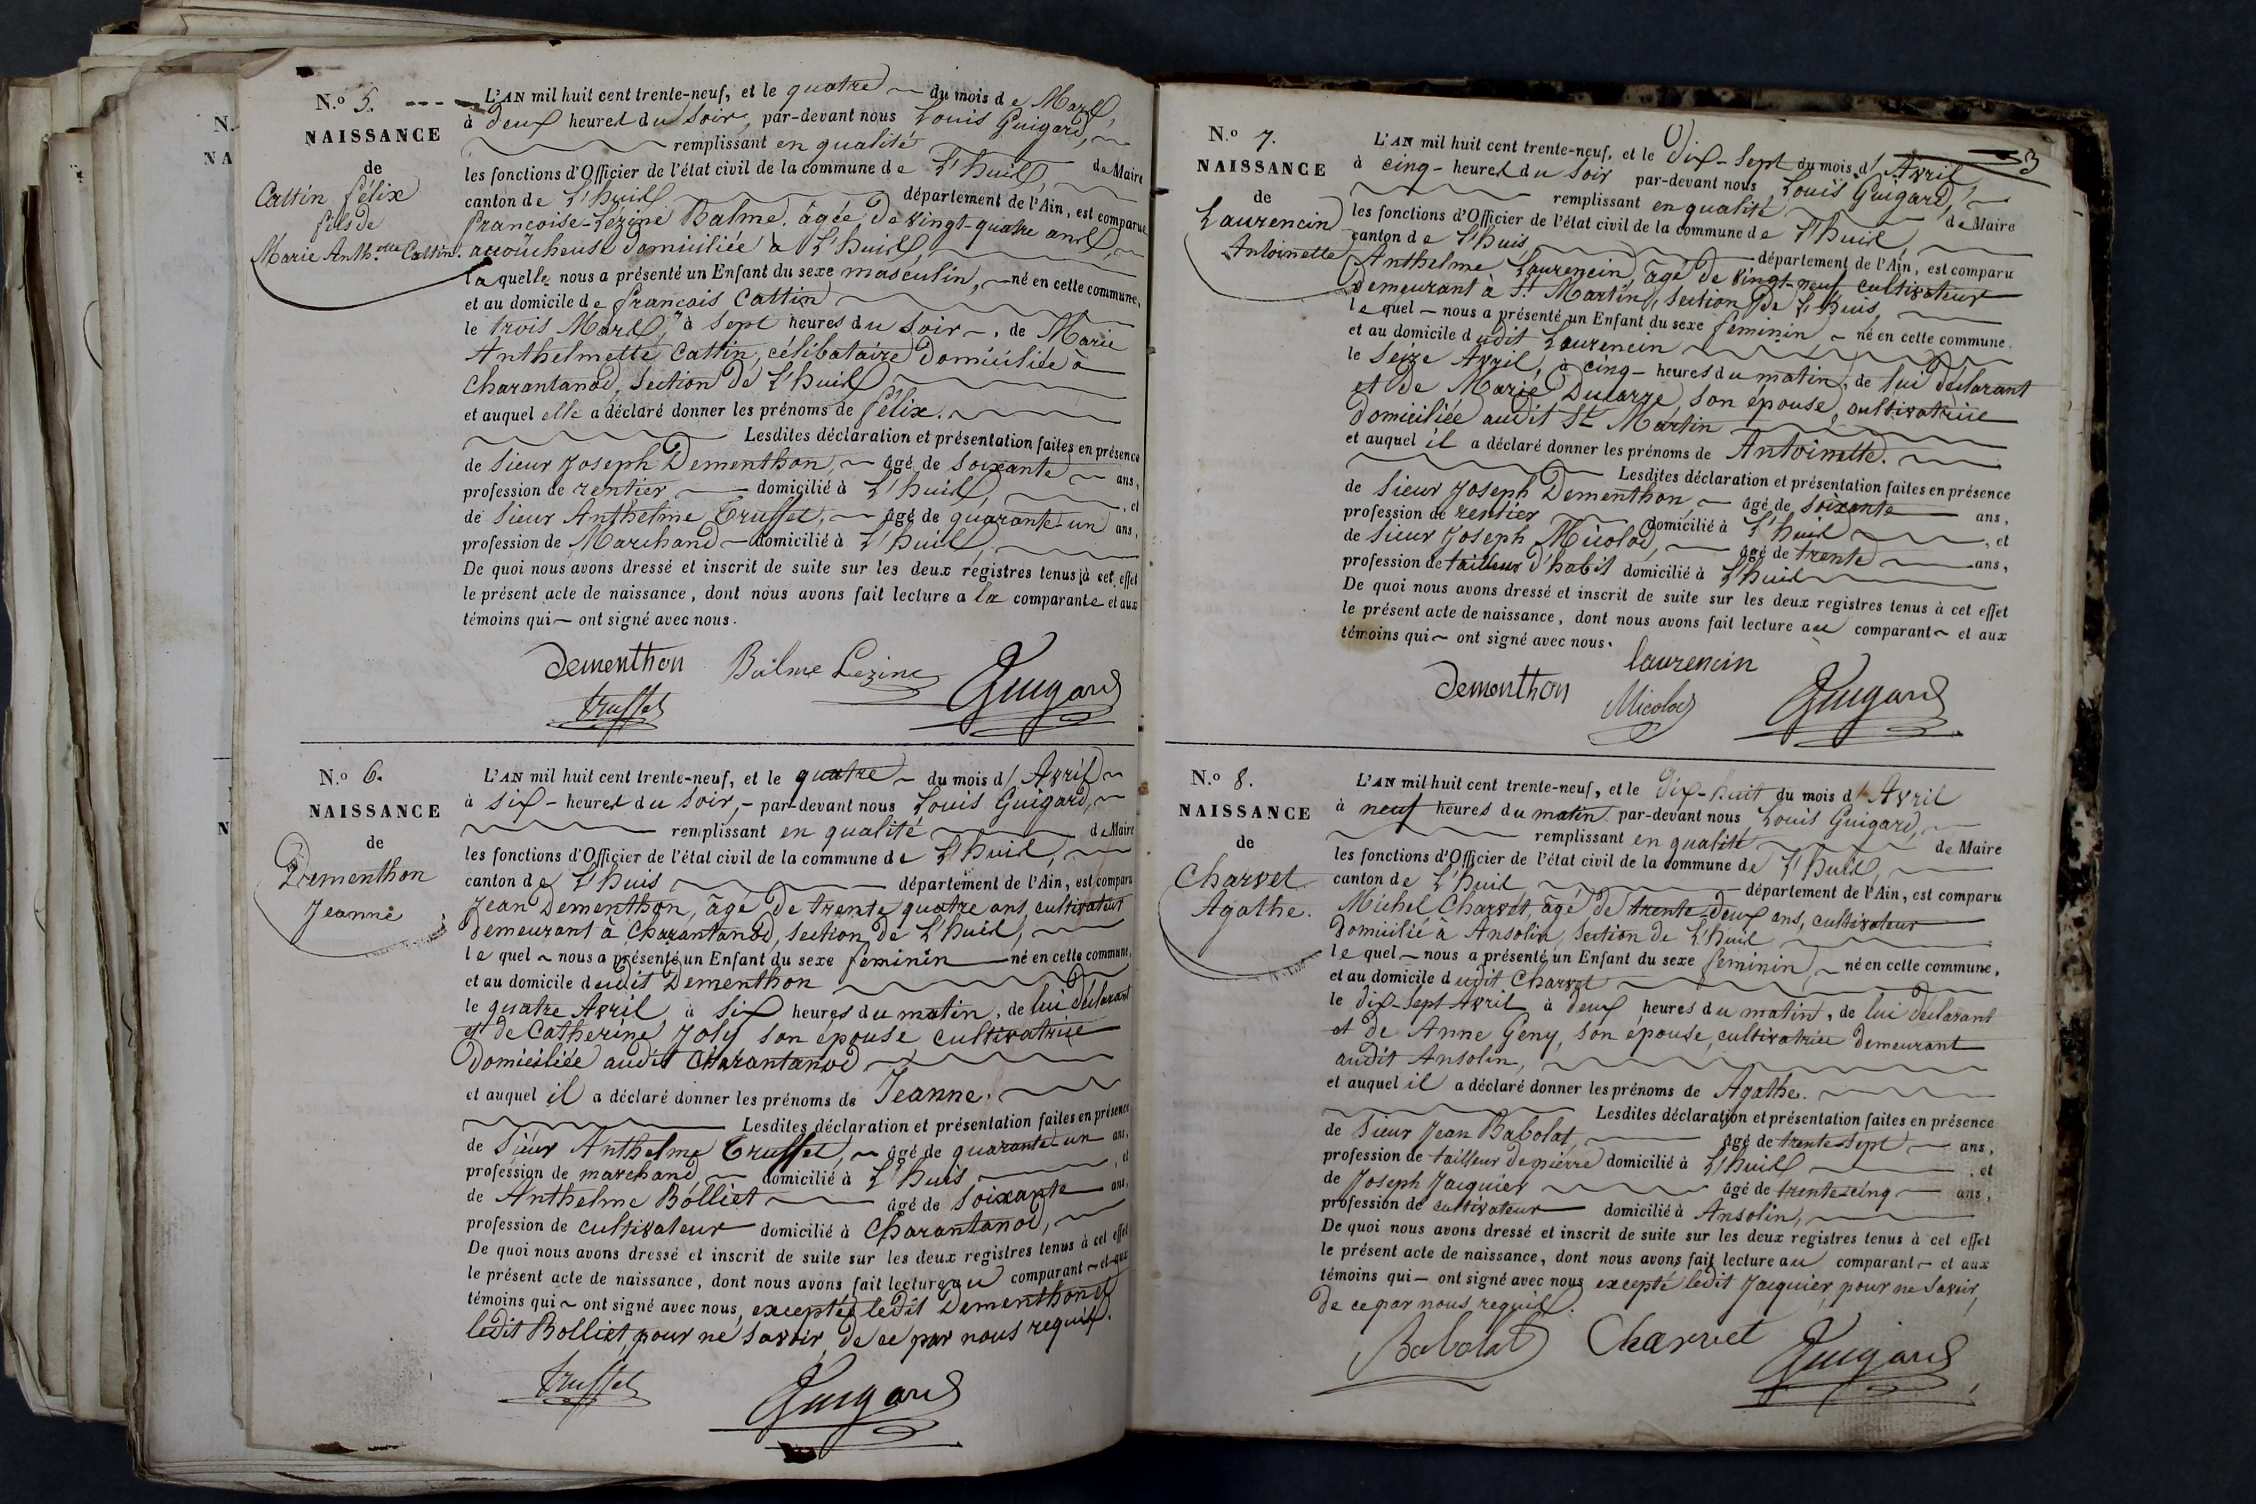 N.o 5.
NAISSANCE
de
Cattin félix
fils de
Marie Anth.elle Cattin.
L'AN mil huit cent trente-neuf, et le quatre du mois de Mars,
à deux heures du soir, par-devant nous Louis Guigard,
remplissant en qualité de Maire
les fonctions d'Officier de l'état civil de la commune de L'huis,
canton de L'huis département de l'Ain, est comparue
françoise-Lézine Balme, âgée de vingt-quatre ans,
accoucheuse domiciliée à L'huis,
laquelle nous a présenté un Enfant du sexe masculin, né en cette commune,
et au domicile de françois Cattin
le trois Mars, à sept heures du soir, de Marie
Anthelmette Cattin, célibataire domiciliée à
Charantanod, section de L'huis,
et auquel elle a déclaré donner les prénoms de félix.
Lesdites déclaration et présentation faites en présence
de sieur Joseph Dementhon, âgé de soixante ans,
profession de rentier domicilié à L'huis, et
de sieur Anthelme Truffet, âgé de quarante-un ans,
profession de Marchand domicilié à L'huis,
De quoi nous avons dressé et inscrit de suite sur les deux registres tenus à cet effet
le présent acte de naissance, dont nous avons fait lecture a la comparante et aux
témoins qui ont signé avec nous.
Dementhon Balme Lezine Guigard
truffet
N.o 6.
NAISSANCE
de
Dementhon
Jeanne
L'AN mil huit cent trente-neuf, et le quatre du mois d'Avril
à six heures du soir, par-devant nous Louis Guigard,
remplissant en qualité de Maire
les fonctions d'Officier de l'état civil de la commune de L'huis,
canton de L'huis département de l'Ain, est comparu
Jean Dementhon, âgé de trente quatre ans, cultivateur
demeurant à Charantanod, section de L'huis,
lequel nous a présenté un Enfant du sexe féminin né en cette commune,
et au domicile dudit Dementhon
le quatre Avril à six heures du matin, de lui déclarant
et de Catherine Joly son épouse cultivatrice
domiciliée audit Charantanod
et auquel il a déclaré donner les prénoms de Jeanne.
Lesdites déclaration et présentation faites en présence
de Sieur Anthelme Truffet, âgé de quarante-un ans,
profession de marchand domicilié à L'huis, et
de Anthelme Bolliet âgé de soixante ans,
profession de cultivateur domicilié à Charantanod,
De quoi nous avons dressé et inscrit de suite sur les deux registres tenus à cet effet
le présent acte de naissance, dont nous avons fait lecture au comparant et aux
témoins qui ont signé avec nous, exceptés ledit Dementhon et
ledit Bolliet, pour ne savoir, de ce par nous requis.
truffet Guigard
3
N.o 7.
NAISSANCE
de
Laurencin
Antoinette
L'AN mil huit cent trente-neuf, et le Dix-sept du mois d'Avril
à cinq heures du soir par-devant nous Louis Guigard,
remplissant en qualité de Maire
les fonctions d'Officier de l'état civil de la commune de L'huis,
canton de L'huis département de l'Ain, est comparu
Anthelme Laurencin, âgé de vingt-neuf cultivateur
demeurant à St Martin, section de L'huis,
lequel nous a présenté un Enfant du sexe féminin, né en cette commune.
et au domicile dudit Laurencin
le seize Avril, à cinq heures du matin, de lui déclarant
et de Marie Ducarre, son épouse, cultivatrice
domiciliée audit St Martin
et auquel il a déclaré donner les prénoms de Antoinette.
Lesdites déclaration et présentation faites en présence
de sieur Joseph Dementhon âgé de soixante ans,
profession de rentier domicilié à L'huis, et
de sieur Joseph Micolod, âgé de trente ans,
profession de tailleur d'habit domicilié à L'huis
De quoi nous avons dressé et inscrit de suite sur les deux registres tenus à cet effet
le présent acte de naissance, dont nous avons fait lecture au comparant et aux
témoins qui ont signé avec nous.
laurencin
Dementhon Micolod Guigard
N.o 8.
NAISSANCE
de
Charvet
Agathe.
L'AN mil huit cent trente-neuf, et le Dix-huit du mois d'Avril
à neuf heures du matin par-devant nous Louis Guigard,
remplissant en qualité de Maire
les fonctions d'Officier de l'état civil de la commune de L'huis,
canton de L'huis département de l'Ain, est comparu
Michel Charvet, âgé de trente-deux ans, cultivateur
domicilié à Ansolin, section de L'huis
lequel nous a présenté un Enfant du sexe féminin, né en cette commune,
et au domicile dudit Charvet
le dix-sept Avril à deux heures du matin, de lui déclarant
et de Anne Geny, son épouse, cultivatrice demeurant
audit Ansolin,
et auquel il a déclaré donner les prénoms de Agathe.
Lesdites déclaration et présentation faites en présence
de sieur Jean Babolat, âgé de trente-sept ans,
profession de tailleur de pierre domicilié à L'huis, et
de Joseph Jacquier âgé de trente-cinq ans,
profession de cultivateur domicilié à Ansolin,
De quoi nous avons dressé et inscrit de suite sur les deux registres tenus à cet effet
le présent acte de naissance, dont nous avons fait lecture au comparant et aux
témoins qui ont signé avec nous excepté ledit Jacquier, pour ne savoir,
de ce par nous requis.
Babolat Charvet Guigard